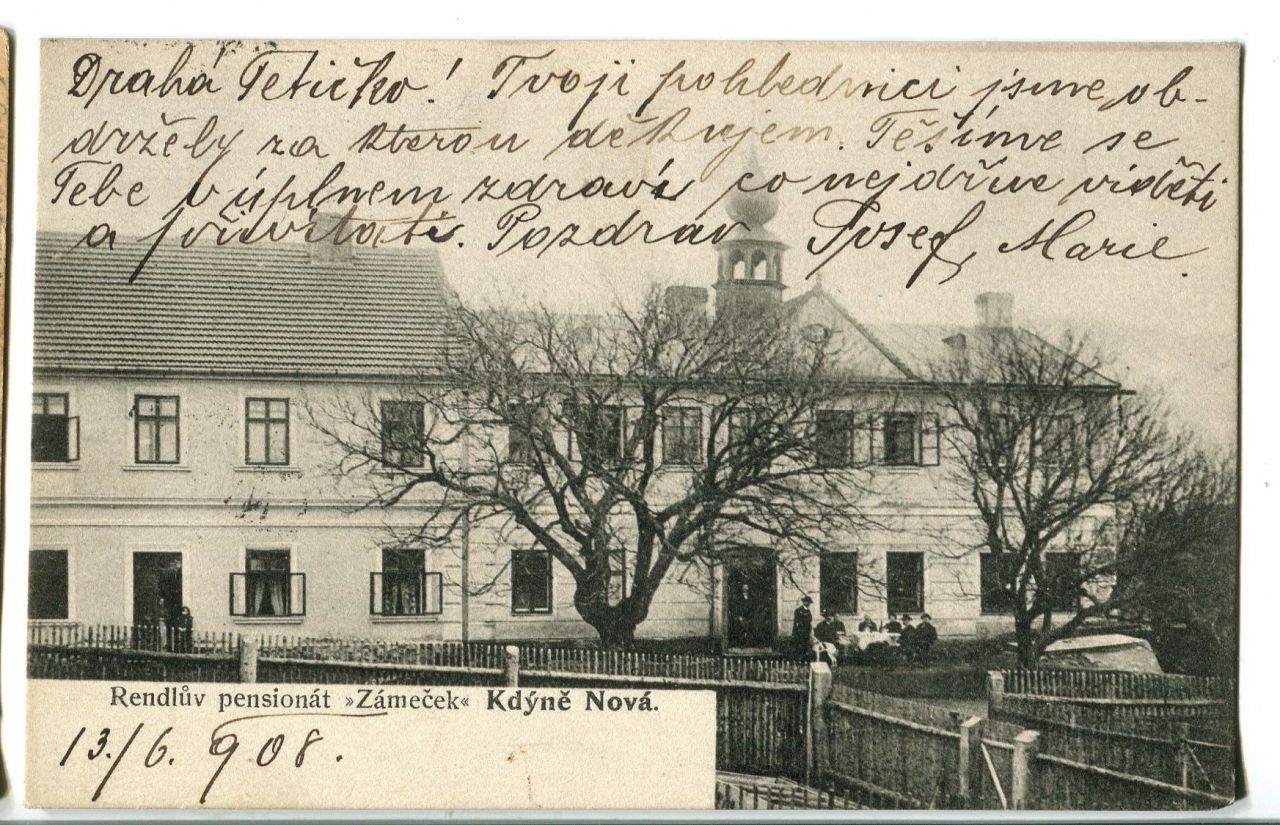 Drahá Tetičko! Tvoji pohlednici jsme, ob-
držely za kterou děkujem. Těšíme se
Tebe v úplnem zdraví co nejdříve viděti
a přivítati. Pozdrav Josef, Marie.
Rendlův pensionát »Zámeček« Kdýně Nová.
13/6. 908.